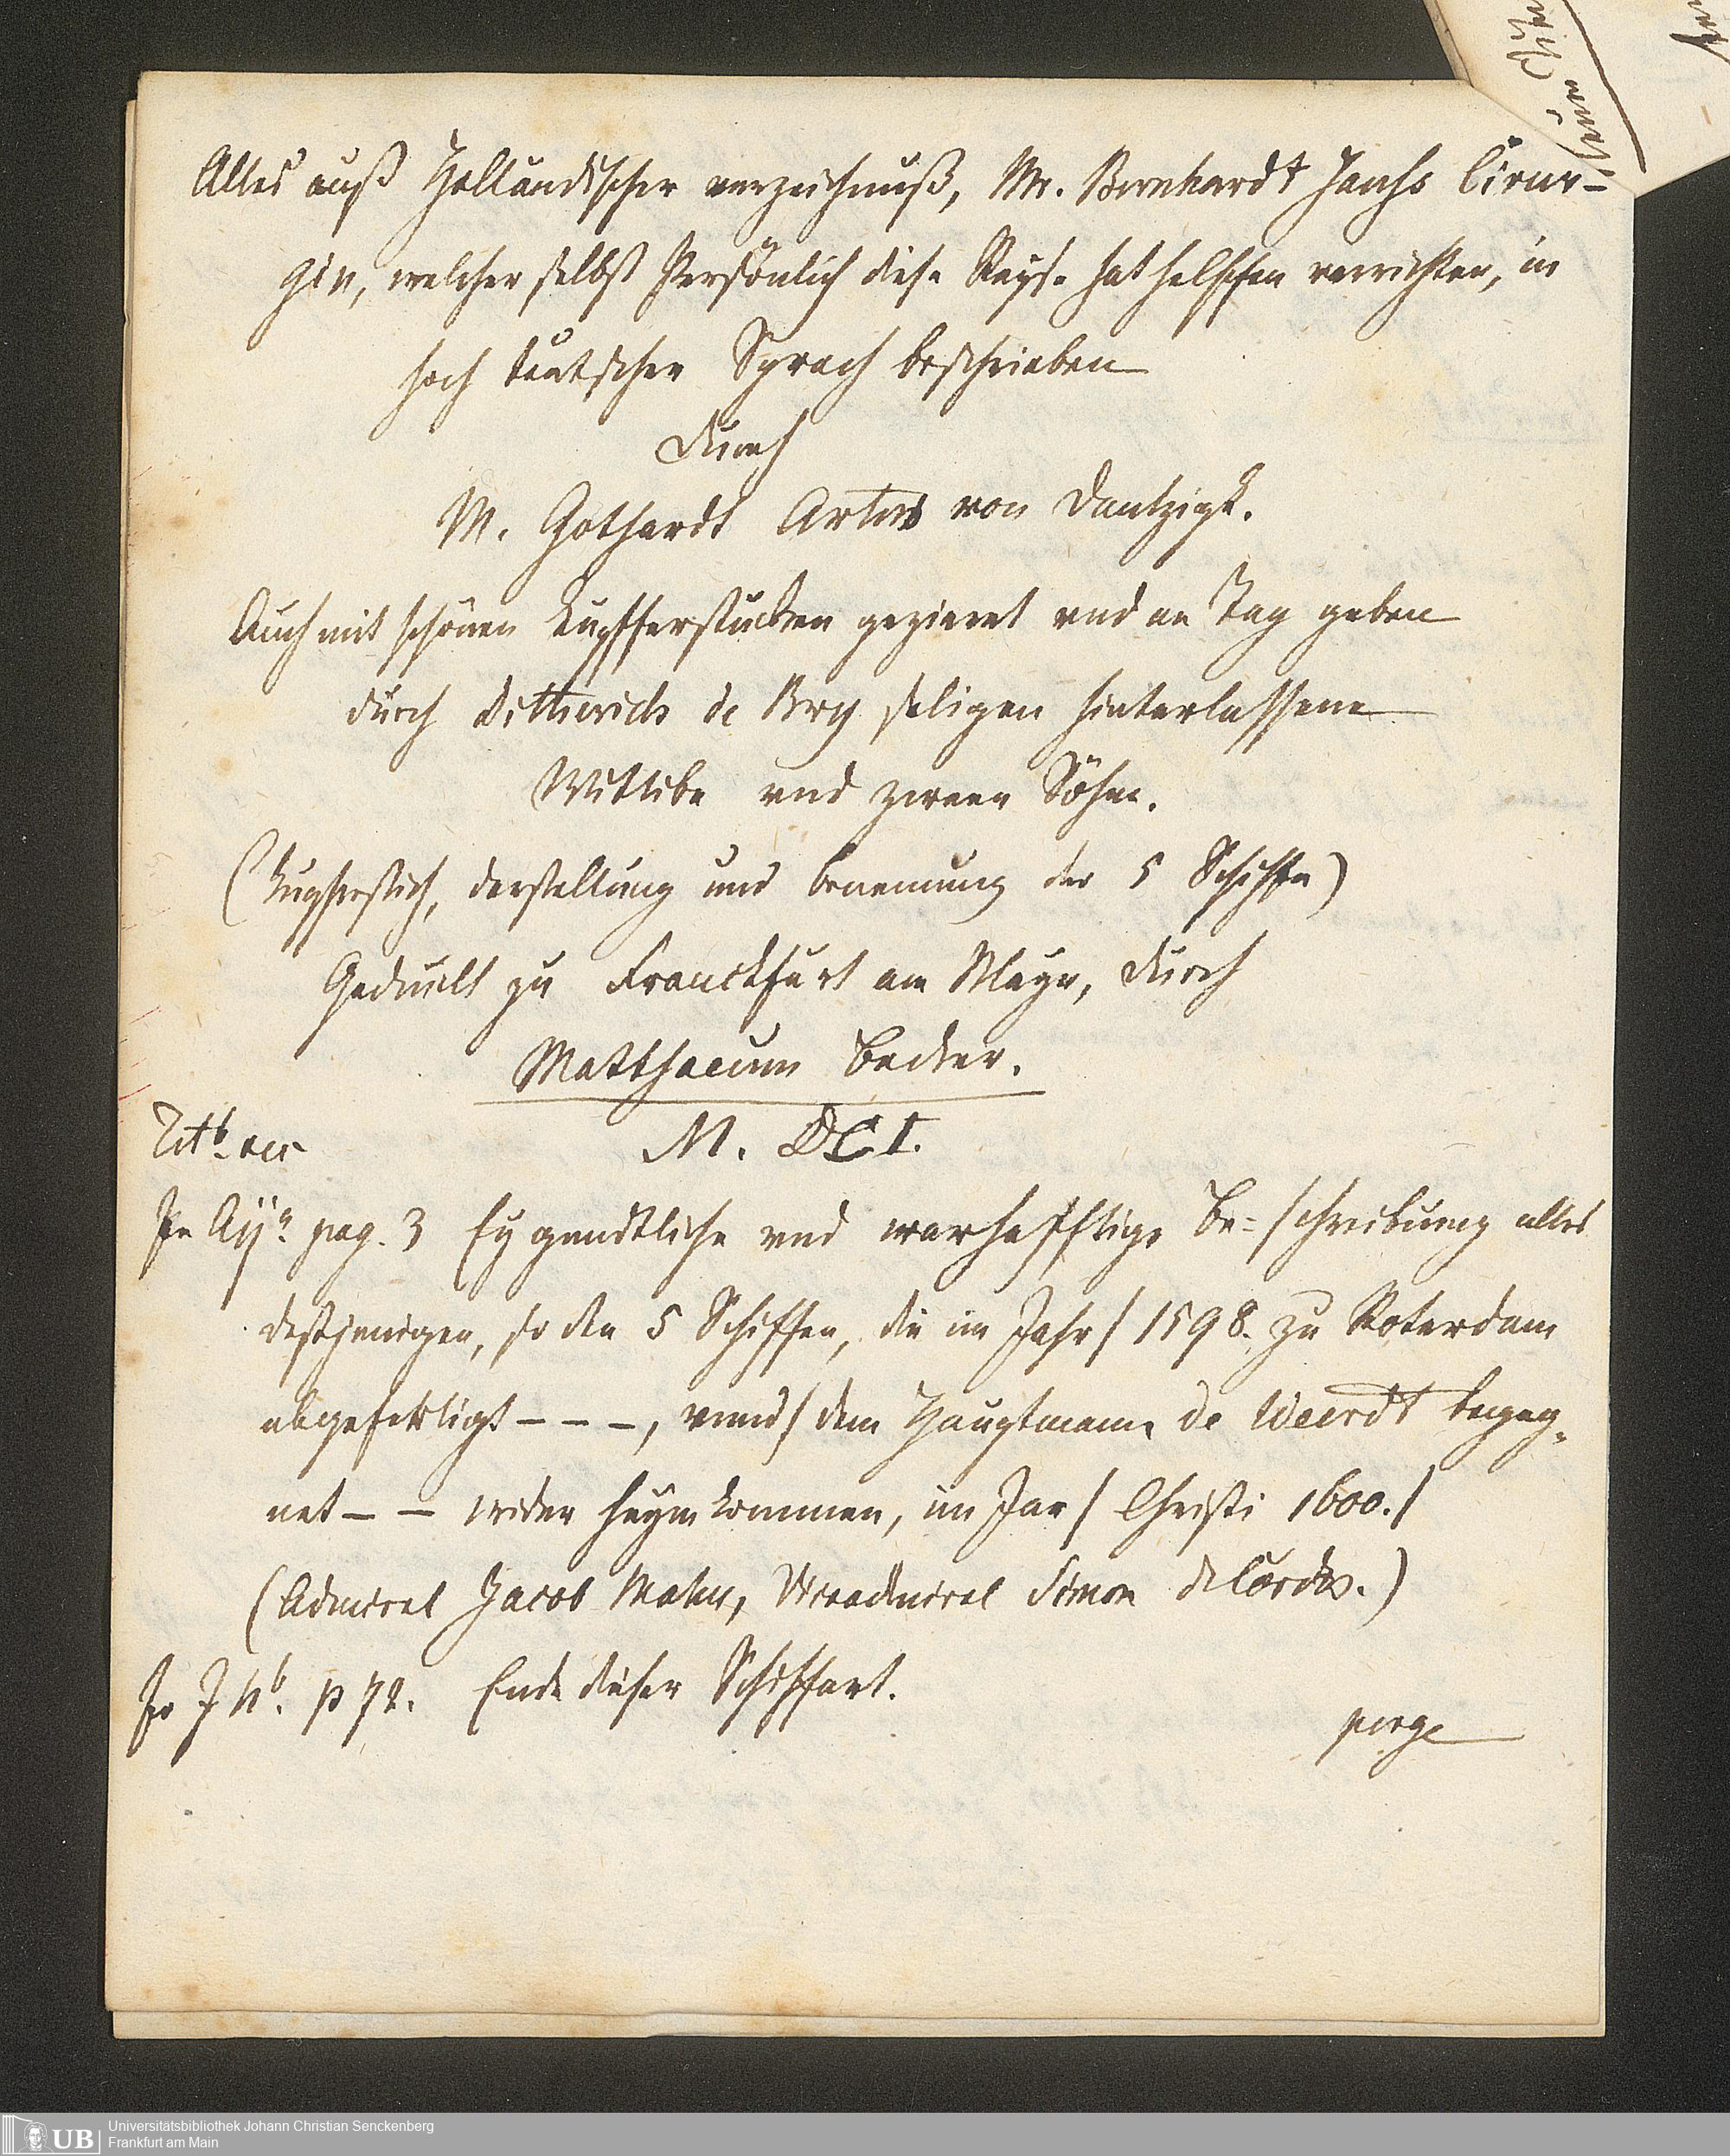 Alles auß Holländischer verzeichnuß, Mr. Bernhardt Janhs Cirur-
gin, welcher selbst Persönlich diese Reyse hat helffen verrichten, in
hoch teutscher Sprach beschrieben
durch
M. Gothardt Artus von Dantzigk.
Auch mit schönen Kupfferstücken gezieret vnd an Tag geben
durch Ditterichs de Bry seligen hinterlassene
Wittibe vnd zween Söhne.
(Kupferstich, Darstellung und Benennung der 5 Schiffe)
Gedruckt zu Franckfurt am Mayn, durch
Matthaeum Becker.
M. DCI.
Titb. ver
Fr Aijª. pag. 3 Eygendtliche vnd warhafftige Be=/schreibung alles
deßjenigen, so den 5 Schiffen, die im Jahr/ 1598. zu Roterdam
abgefertigt - - -, vnnd/ dem Hauptmann de Weerdt begeg-
net - - wider heym kommen, im Jar/ Christi 1600./
(Admiral Jacob Mahu, Viceadmiral Simon de Cordes.)
p 72. Ende dieser Schiffart.
perge
Universitätsbibliothek Johann Christian Senckenberg
UB Frankfurt am Main